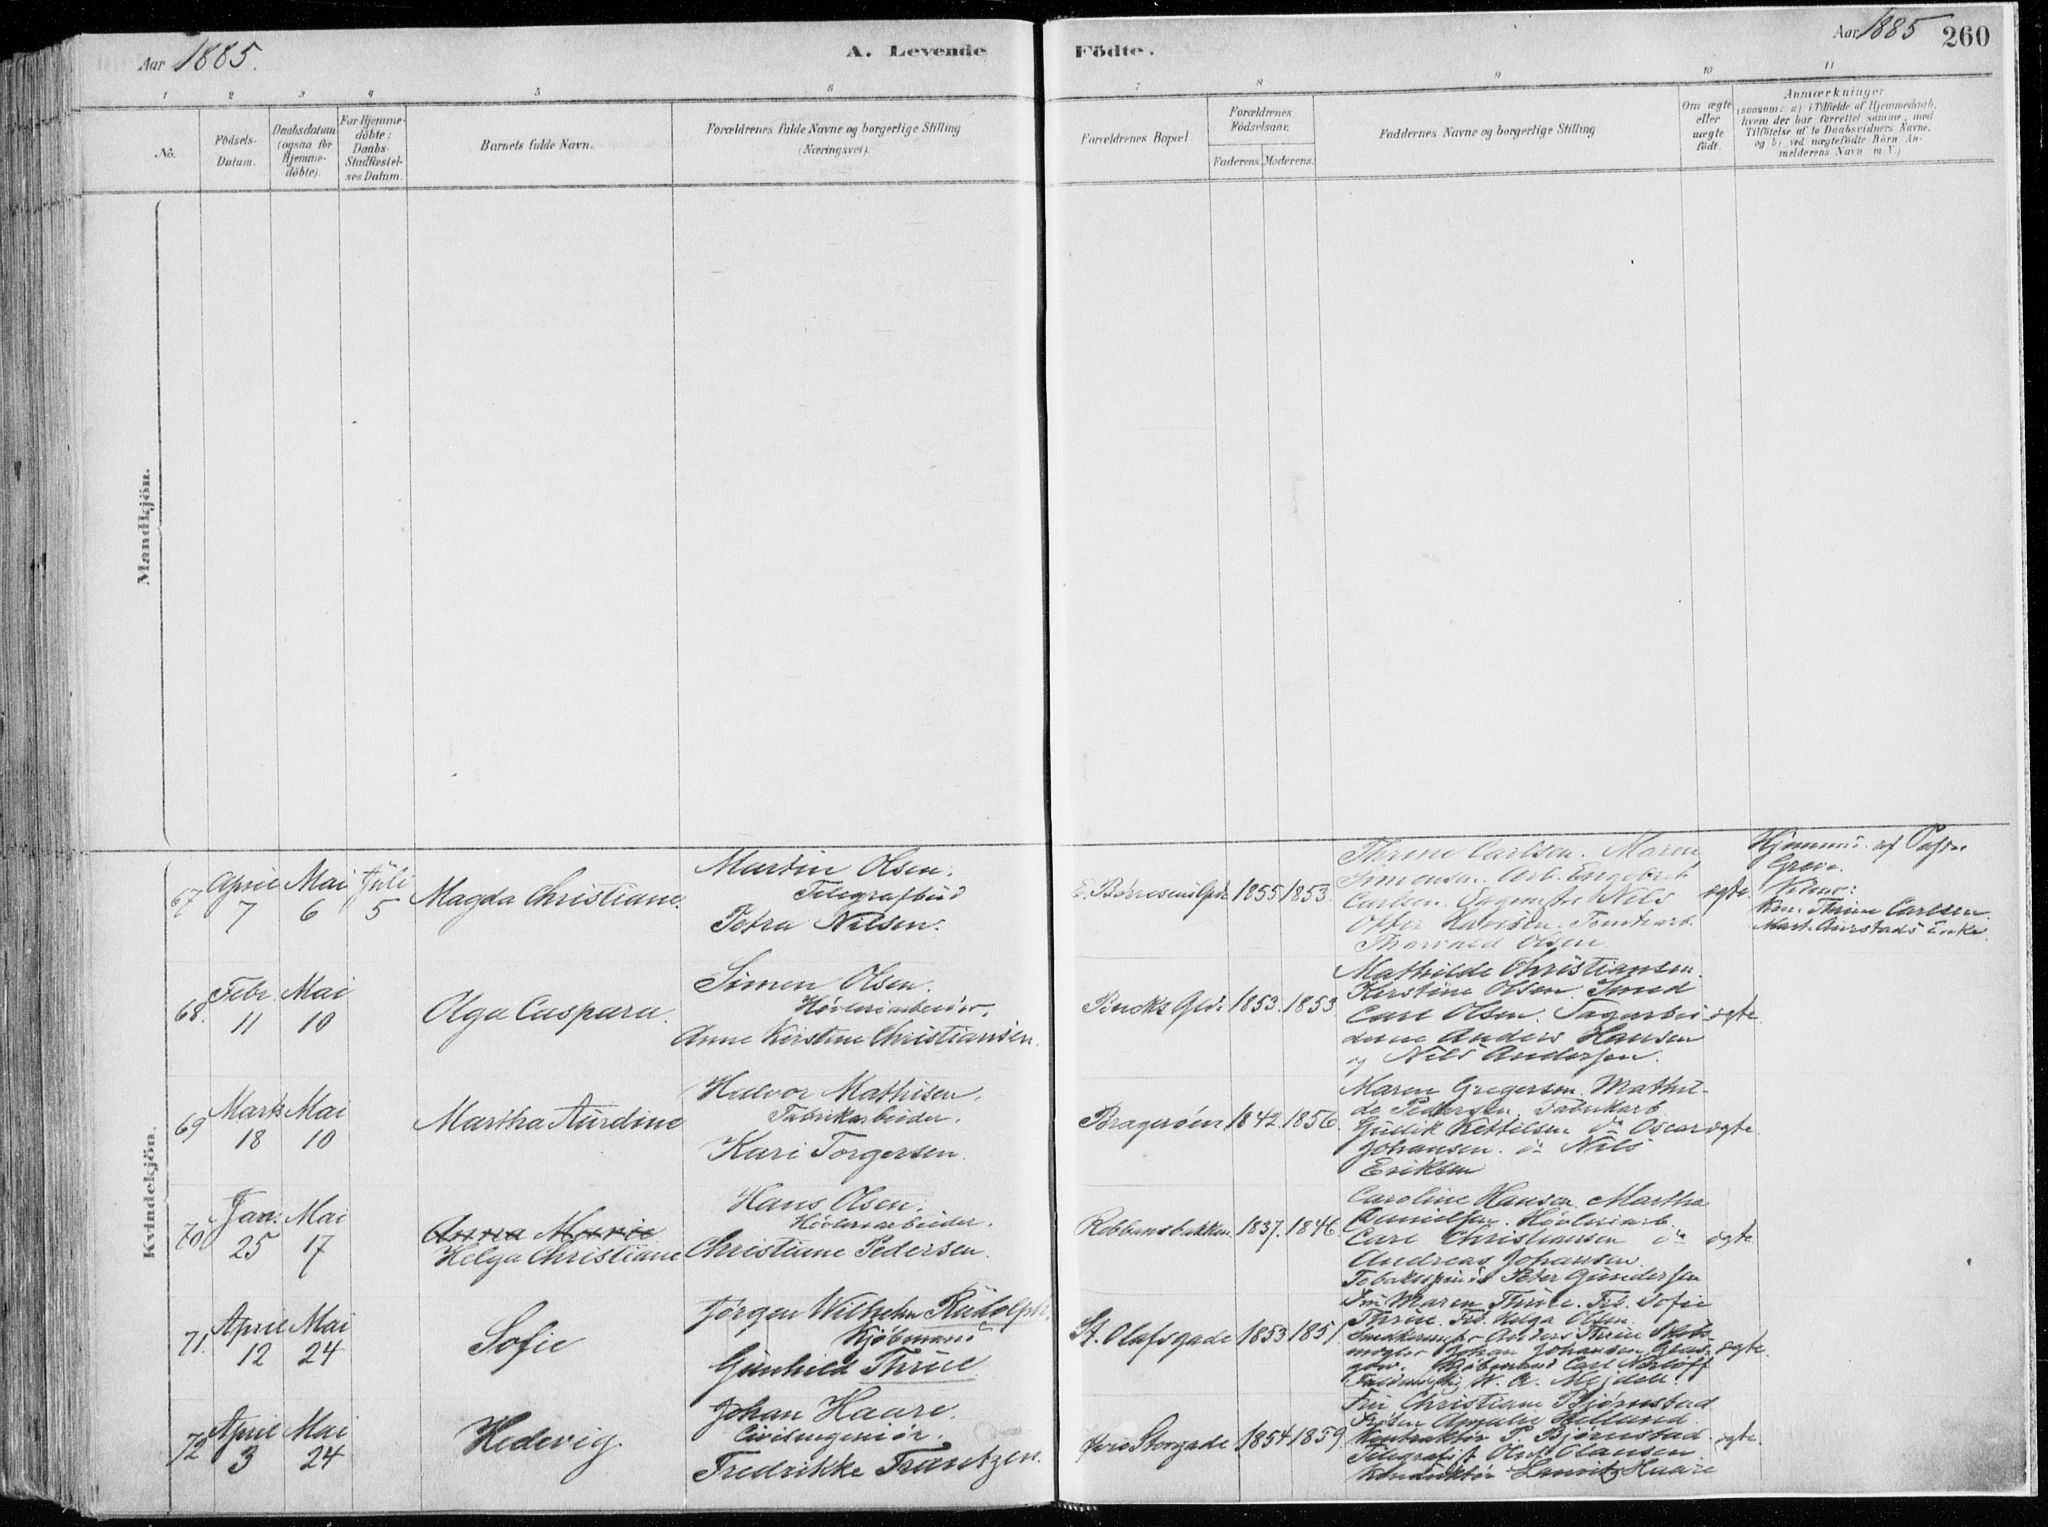 Aar 1885.
A. Levende
Födte.
Aar 1885
260
1 2 3 4 5 6 7 8 9 10 11
No.
Födsels-
Datum.
Daabsdatum
(ogsaa for
Hjemme-
döbte).
For Hjemme-
döbte:
Daabs-
Stadfæstel-
ses Datum.
Barnets fulde Navn.
Forældrenes fulde Navne og borgerlige Stilling
(Næringsvei).
Forældrenes Bopæl
Forældrenes
Födselsaar.
Faderens. Moderens.
Faddernes Navne og borgerlige Stilling
Om ægte
eller
uægte
födt.
Anmærkninger
(saasom: a) i Tilfælde af Hjemmedaab,
hvem der har forrettet samme, med
Tilföielse af to Daabsvidners Navne,
og b) ved uægtefödte Börn An-
melderens Navn m. V.)
Mandkjön.
Kvindekjön.
67
April
7
Mai
6
Juli
5
Magda Christiane.
Martin Olsen.
Telegrafbud
Petra Nilsen.
1855 1853.
Thrine Carlsen. Maren
Simensen. Arb. Engebret
Carlsen. Nils
Thorvald Olsen
ægte.
Hjemmed. af
Thrine Carlsen.
68.
Febr.
11
Mai
10
Olga Caspara.
Simen Olsen.
Høvleriarbeider.
Anne Kirstine Christiansen.
Bucks Gd. 1853. 1853
Mathilde Christiansen.
Kirstine Olsen. Smed
Carl Olsen. Sagarbei-
derne Anders Hansen
og Nils Andersen.
ægte.
69
Marts
18
Mai
10
Martha Aurdine
Halvor Mathisen.
Fabrikarbeider.
Kari Torgersen.
Bragerøen 1842. 1856.
Maren Gregersen. Mathil-
de Pedersen. Fabrikarb.
Gullik Kittilsen do Oscar
Johansen. do Nils
Eriksen
ægte.
70
Jan.
25
Mai
17
Anna Marie
Helga Christiane
Hans Olsen.
Høvleriarbeider.
Christiane Pedersen.
1837. 1846.
Caroline Hansen Martha
Danielsen. Høvleriarb.
Carl Christiansen do
Andreas Johansen.
Peter Gundersen
ægte.
71.
April
12
Mai
24
Sofie
Jørgen Wilhelm Rudolph.
Kjøbmand
Gunhild Thrue.
St. Olafsgade 1853 1851
Fru Maren Thrue. Frk. Sofie
Thrue. Frk. Helga Olsen.
Anders Thrue Skibs-
mægler Johan Johansen.
Kjøbmand Carl
W. A. Mejdell.
ægte.
72
April
3
Mai
24
Hedevig.
Johan Haare.
Civilingeniør.
Fredrikke Frantzen.
Storgade 1854 1859.
Fru Christiane Bjørnstad
Frøken Amalie
P. Bjørnstad.
Telegrafist Oluf Olausen
Konduktør Haare
ægte.